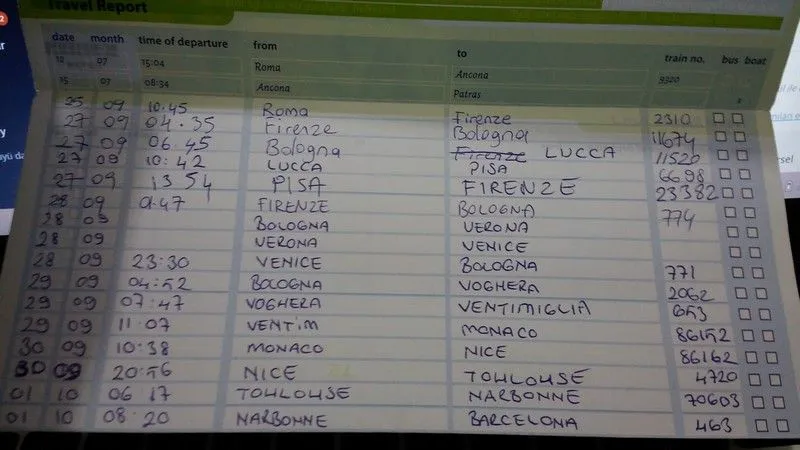 Travel Report
date month time of departure from to train no. bus boat
12 07 15:04 Roma Ancona 9320
15 07 08:34 Ancona Patras x
25 09 10:45 Roma Firenze 2310
27 09 04.35 Firenze Bologna 11674
27 09 06 45 Bologna Firenze LUCCA 11520
27 09 10:42 LUCCA PISA 6698
27 09 13 54 PISA FIRENZE 23382
28 09 01.47 FIRENZE BOLOGNA 774
28 09 BOLOGNA VERONA
28 09 VERONA VENICE
28 09 23:30 VENICE BOLOGNA 771
29 09 04:52 BOLOGNA VOGHERA 2062
29 09 07:47 VOGHERA VENTIMIGLIA 653
29 09 11:07 VENTIM MONACO 86152
30 09 10:38 MONACO NICE 86162
30 09 20:56 NICE TOULOUSE 4720
01 10 06 17 TOULOUSE NARBONNE 70603
01 10 08:20 NARBONNE BARCELONA 463